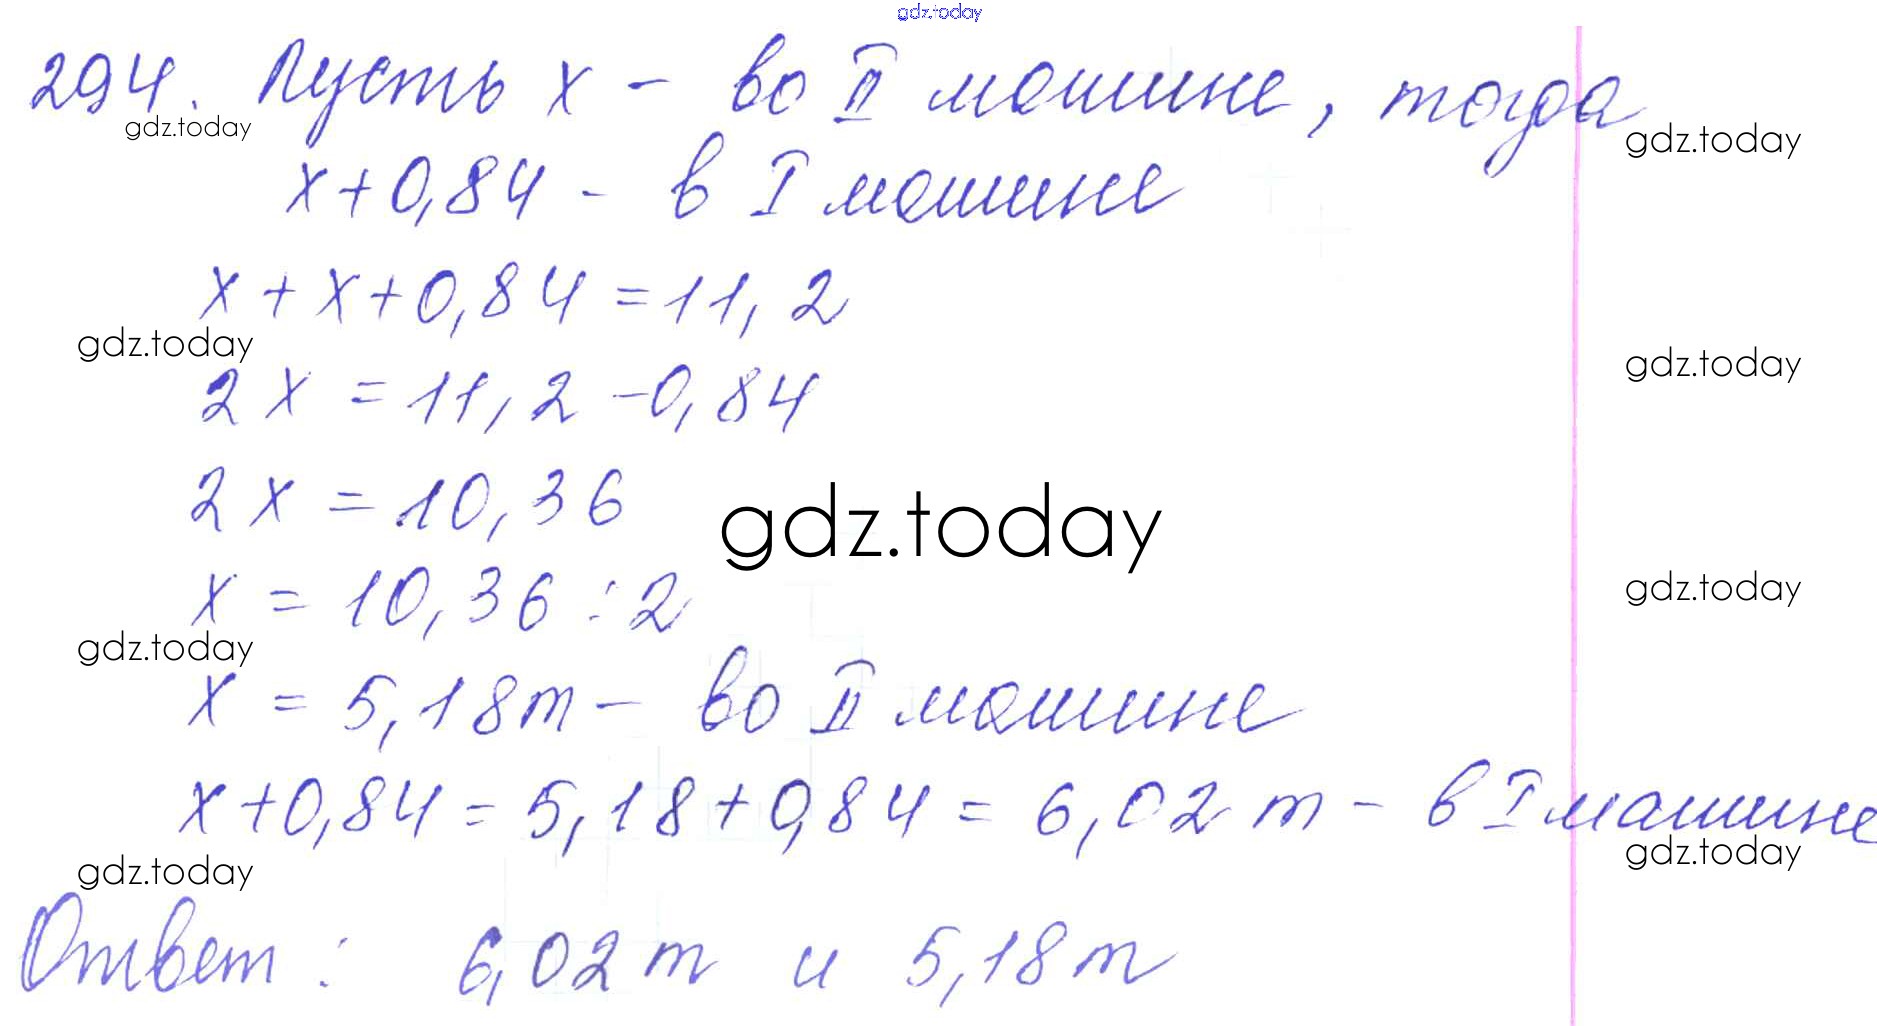 gdz.today
294. Пусть x - во II машине, тогда
gdz.today
gdz.today
x+0,84 - в I машине
x + x + 0,84 = 11,2
gdz.today
gdz.today
2x = 11,2 - 0,84
2x = 10,36
gdz.today
x = 10,36 : 2
gdz.today
gdz.today
x = 5,18т - во II машине
x+0,84 = 5,18+0,84 = 6,02 т - в I машине
gdz.today
gdz.today
Ответ: 6,02 т и 5,18 т